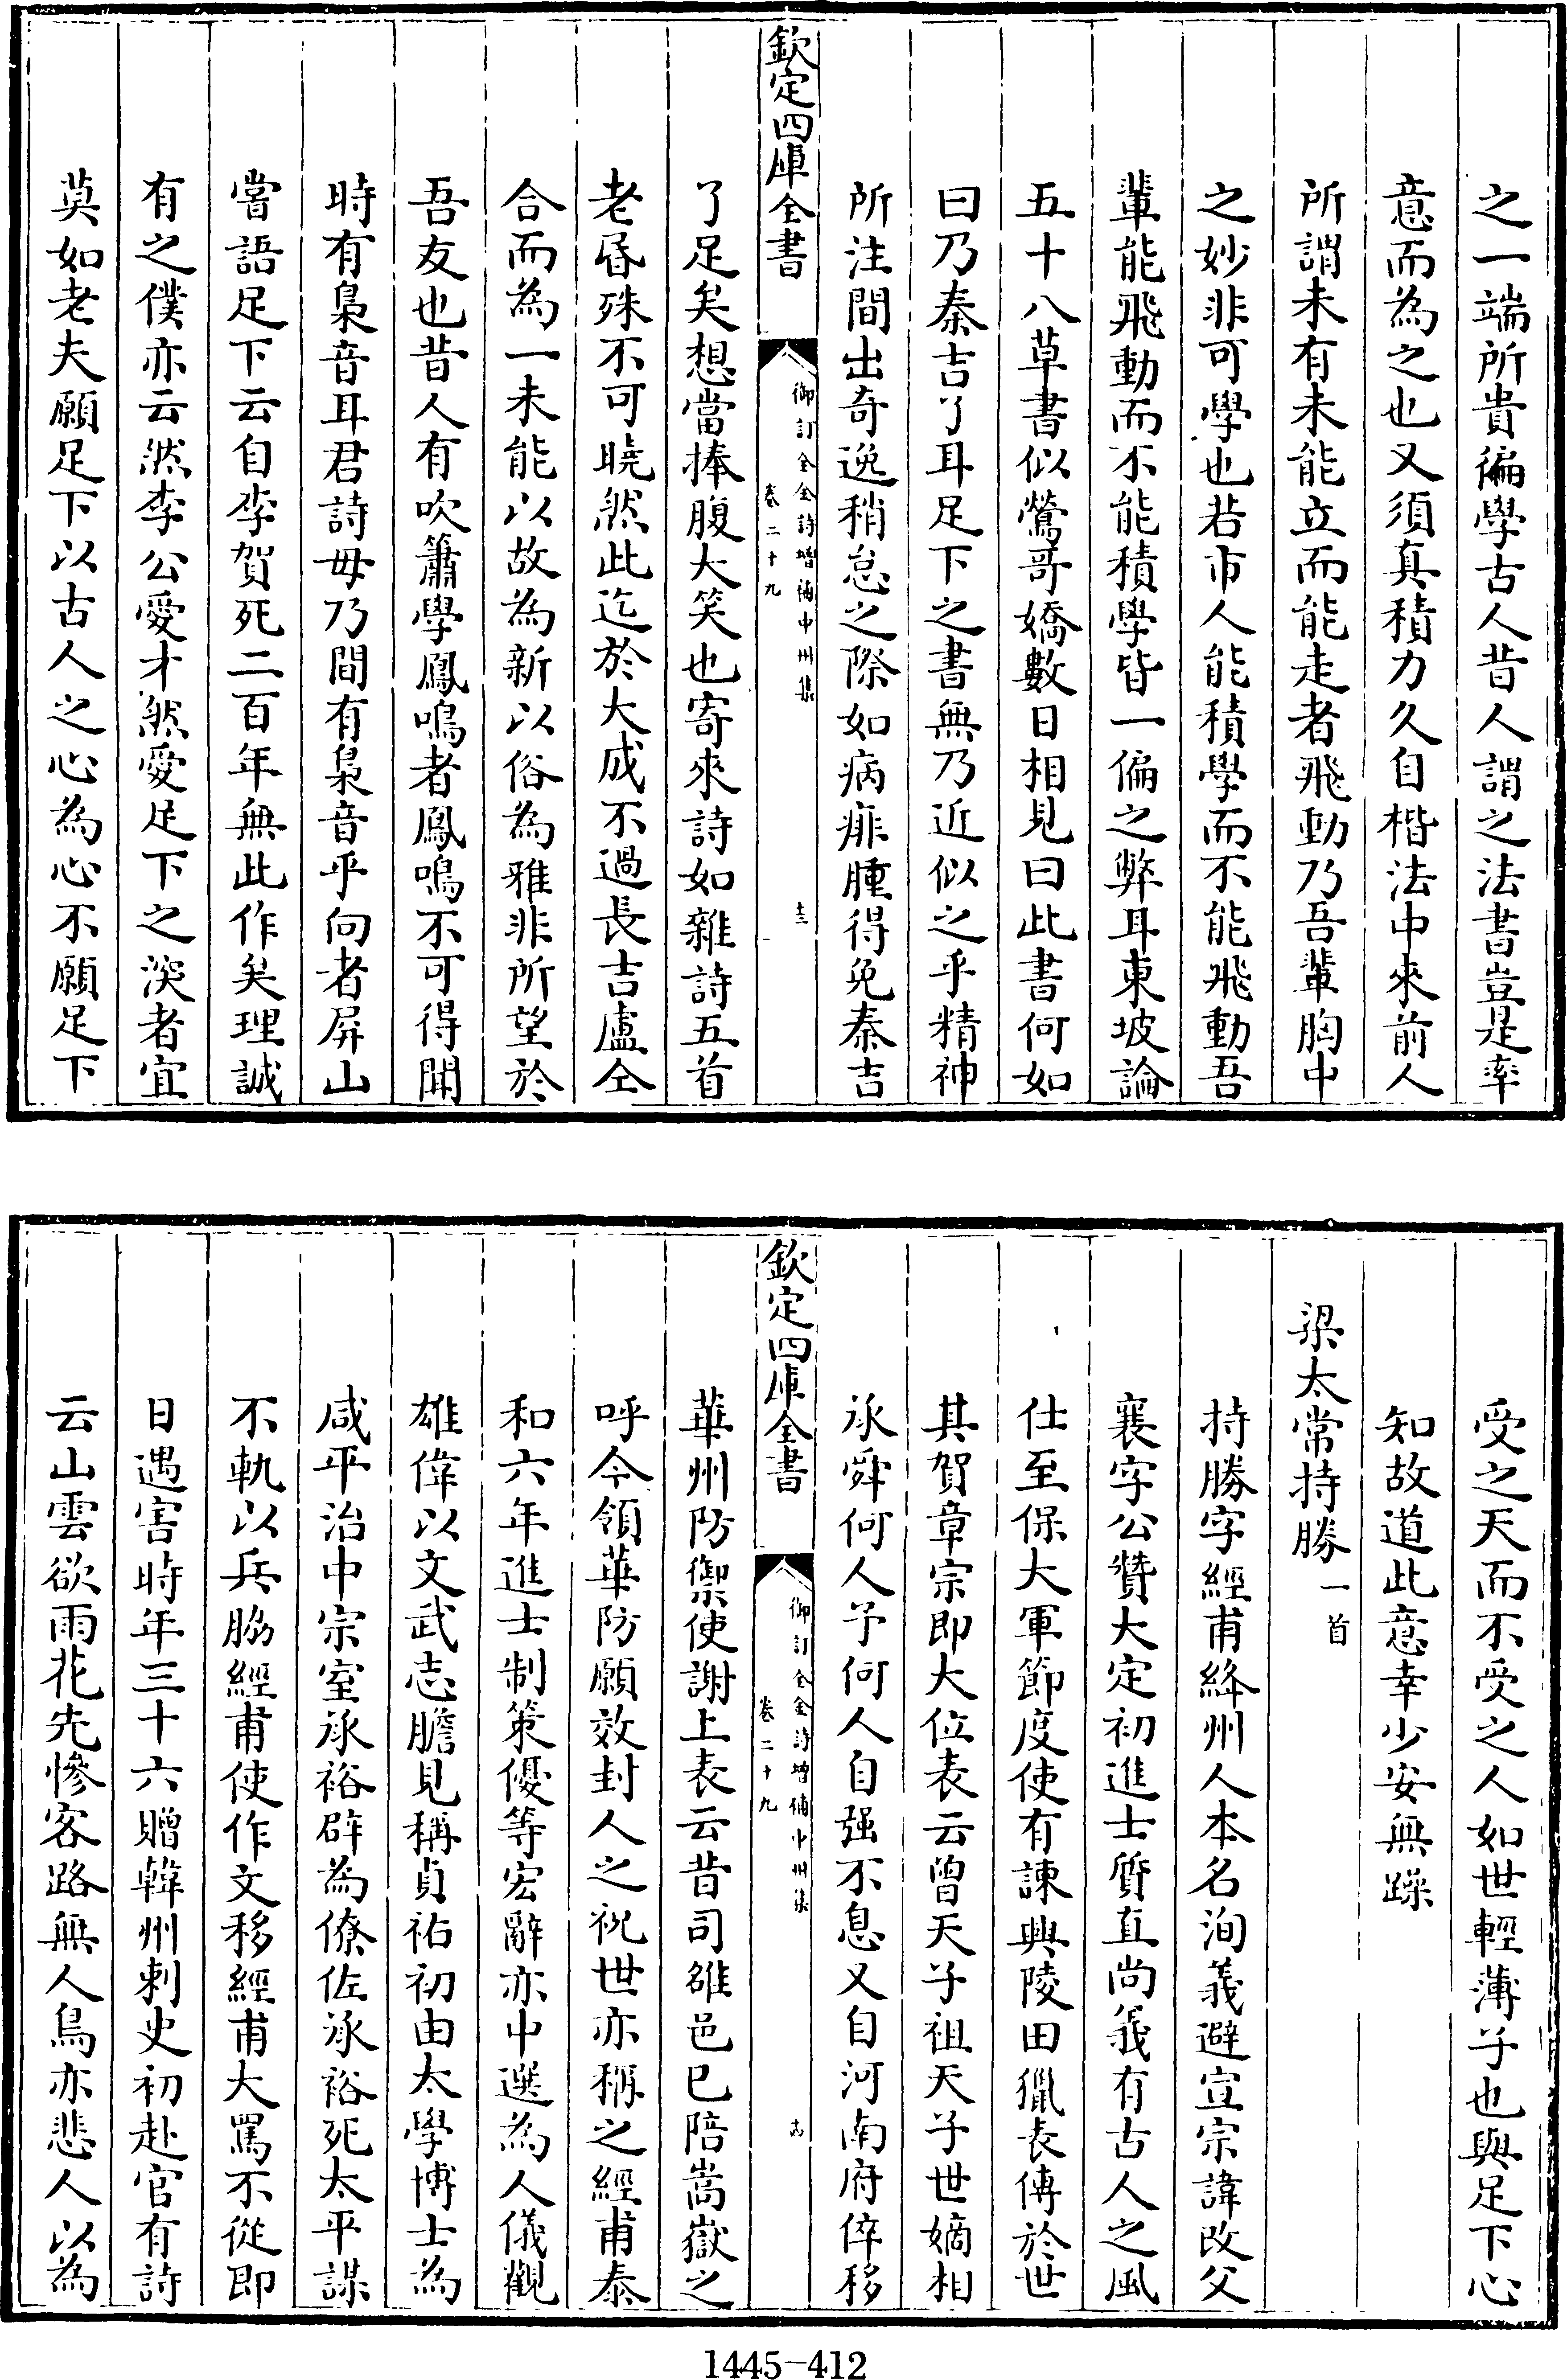 之一端所貴徧學古人昔人謂之法書豈是率
意而為之也又須真積力久自楷法中來前人
所謂未有未能立而能走者飛動乃吾輩胷中
之妙非可學也若市人能積學而不能飛動吾
輩能飛動而不能積學皆一偏之弊耳東坡論
五十八草書似鶯哥嬌數日相見曰此書何如
曰乃秦吉了耳足下之書無乃近似之乎精神
所注間出奇逸稍怠之際如病痱腫得免秦吉
欽定四庫全書
御訂全金詩增補中州集
卷二十九
十三
了足矣想當捧腹大笑也寄來詩如雜詩五首
老昏殊不可曉然此迄於大成不過長吉盧仝
合而為一未能以故為新以俗為雅非所望於
吾友也昔人有吹簫學鳳鳴者鳳鳴不可得聞
時有梟音耳君詩毋乃間有梟音乎向者屏山
嘗語足下云自李賀死二百年無此作矣理誠
有之僕亦云然李公愛才然愛足下之深者宜
莫如老夫願足下以古人之心為心不願足下
受之天而不受之人如世輕薄子也與足下心
知故道此意幸少安無躁
梁太常持勝一首
持勝字經甫絳州人本名洵義避宣宗諱改父
襄字公贊大定初進士質直尚義有古人之風
仕至保大軍節度使有諫興陵田獵表傳於世
其賀章宗即大位表云曾天子祖天子世嫡相
承舜何人予何人自强不息又自河南府倅移
欽定四庫全書
御訂全金詩增補中州集
卷二十九
十四
華州防禦使謝上表云昔司雒邑已陪嵩嶽之
呼今領華防願效封人之祝世亦稱之經甫泰
和六年進士制策優等宏辭亦中選為人儀觀
雄偉以文武志膽見稱貞祐初由太學博士為
咸平治中宗室承裕辟為僚佐承裕死太平謀
不軌以兵脇經甫使作文移經甫大罵不從即
日遇害時年三十六贈韓州刺史初赴官有詩
云山雲欲雨花先慘客路無人鳥亦悲人以為
1445-412